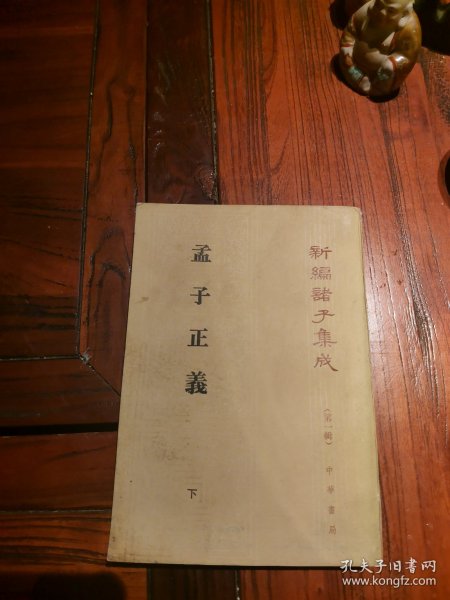 新編諸子集成
（第一輯）
中華書局
孟子正義
下
孔夫子旧书网
www.kongfz.com